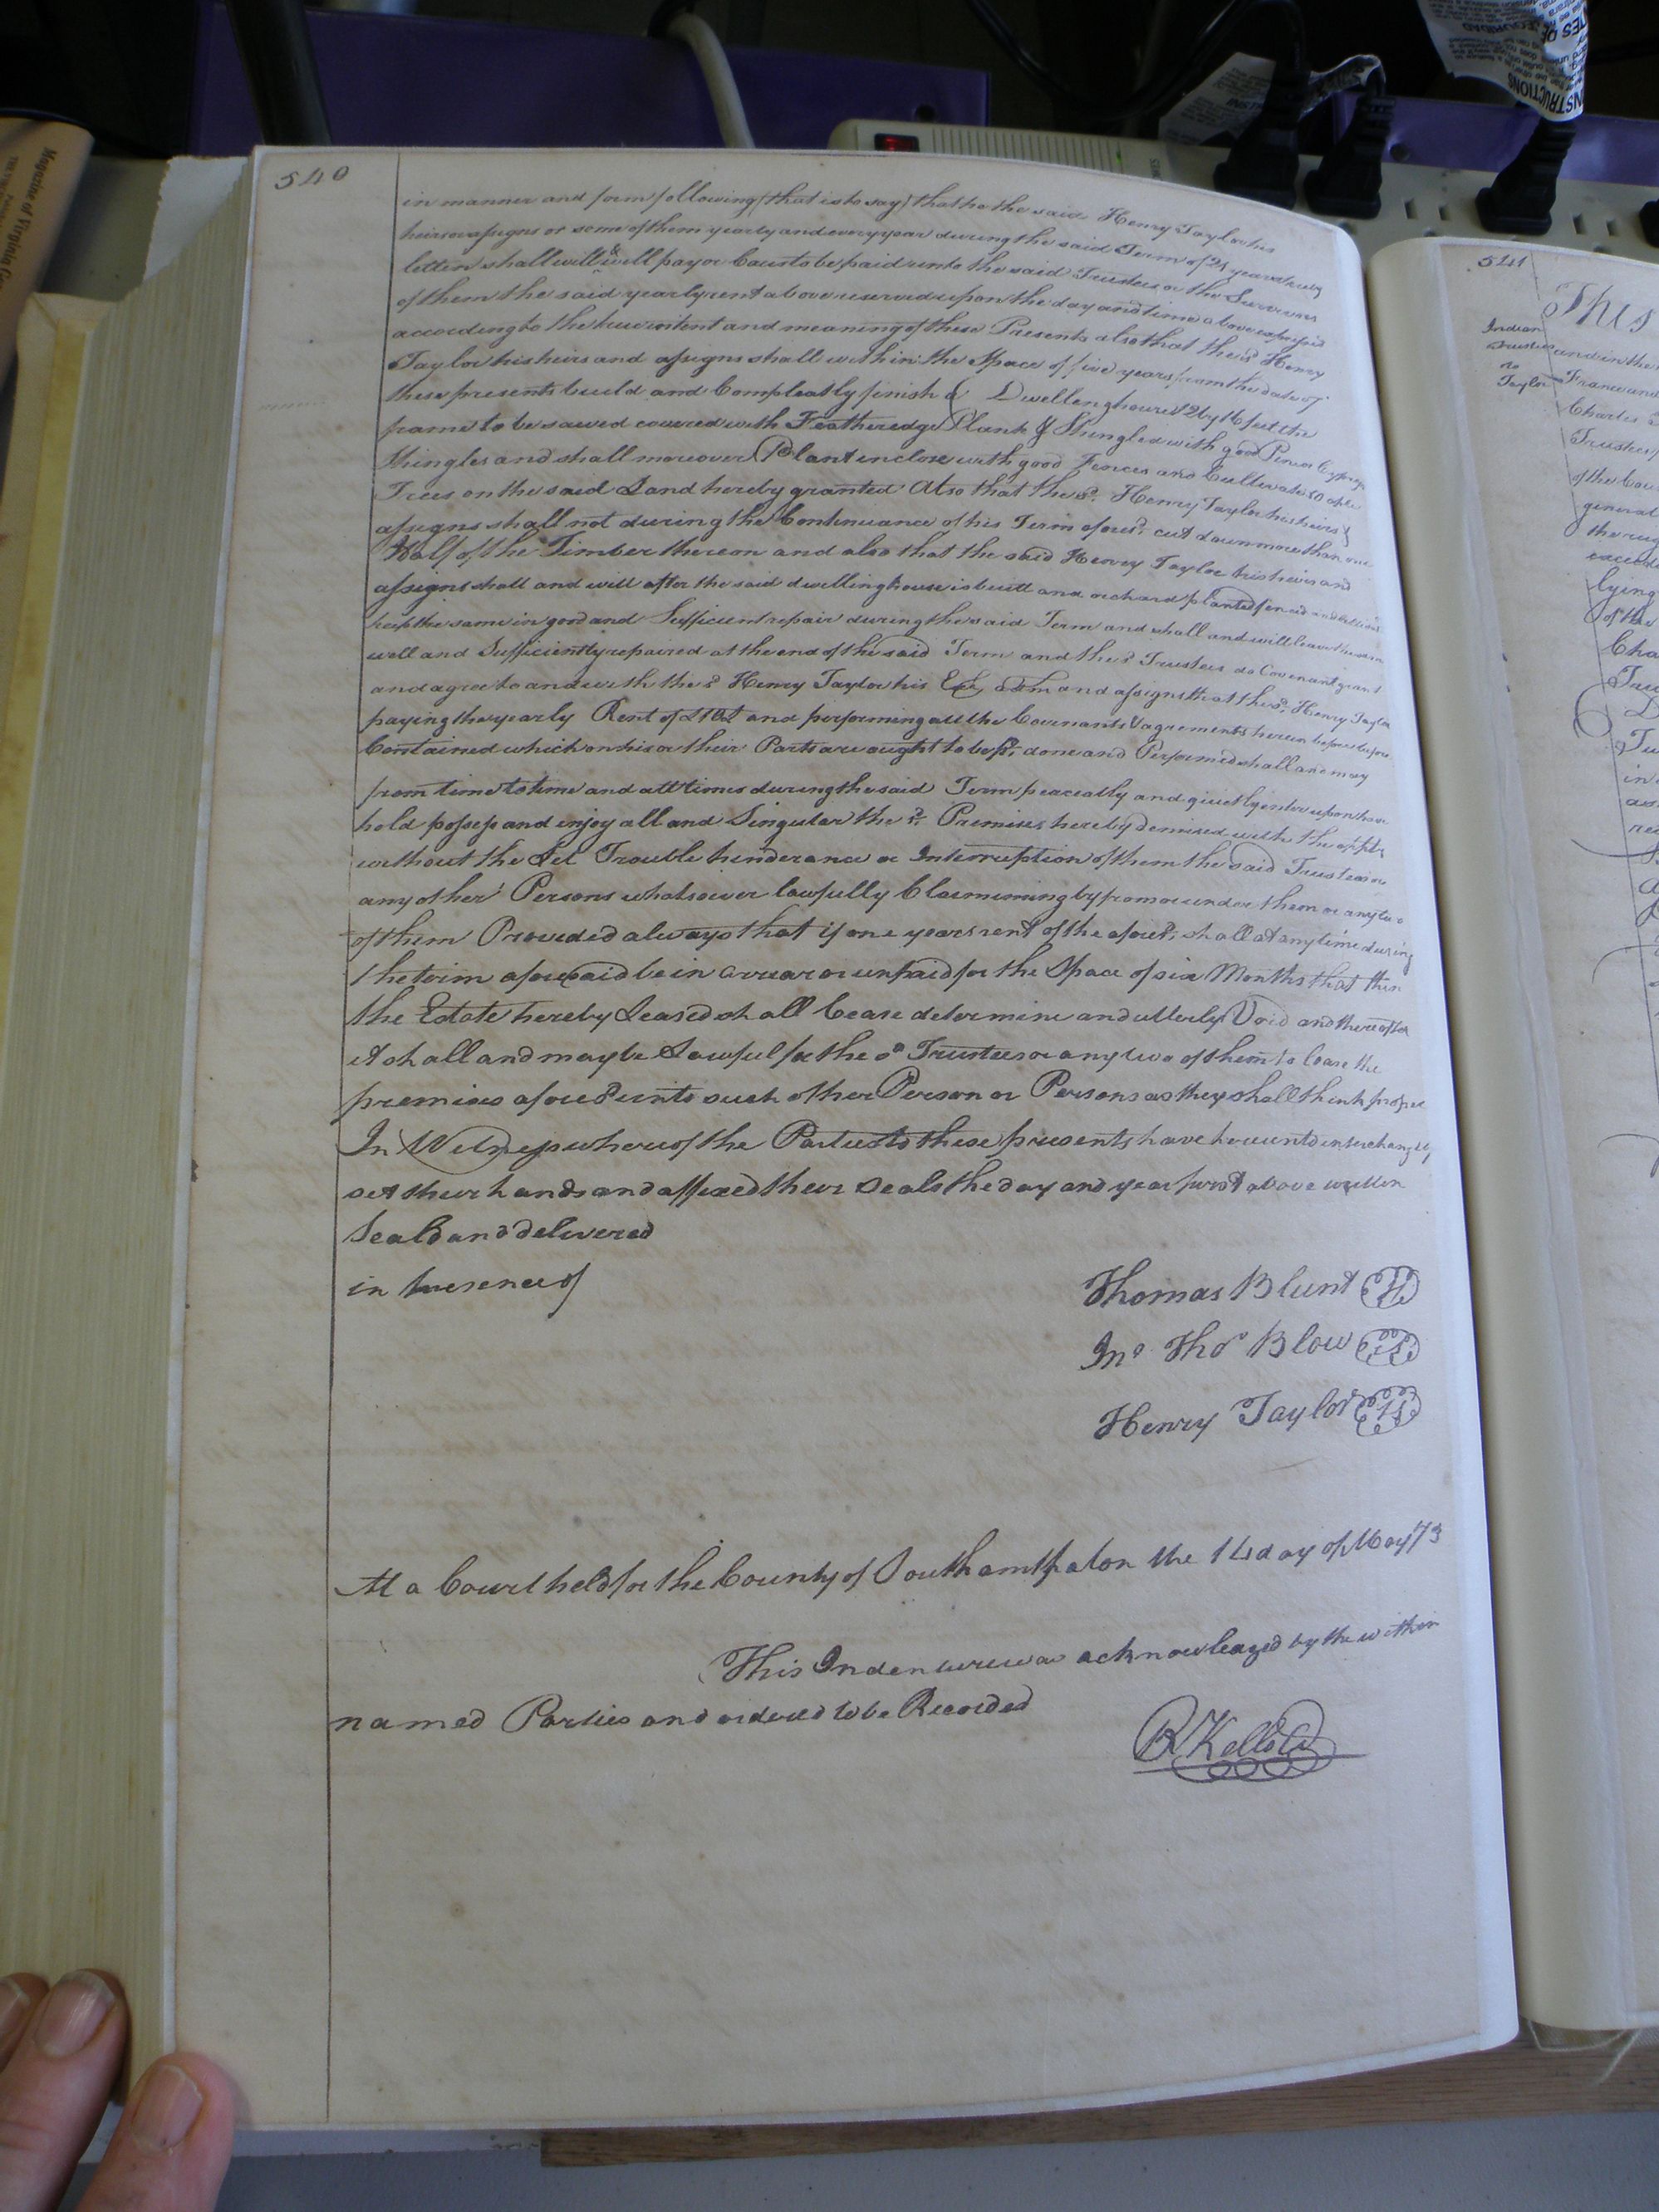 540
in manner and form following (that is to say) that he the said Henry Taylor his
heirs or assigns or some of them yearly and every year during the said Term of 21 years
letten shall will & well pay or Cause to be paid unto the said Trustees or the Survivors
of them the said yearly rent above reserved upon the day and time above expressed
according to the true intent and meaning of these Presents also that the sd Henry
Taylor his heirs and assigns shall within the Space of five years from the date of
these presents build and Compleatly finish a Dwelling house 12 by 16 feet the
frame to be sawed covered with Featheredge Plank & Shingled with good Pine or Cypress
Shingles and shall moreover Plant inclose with good Fences and Cultivate 50 apple
Trees on the said Land hereby granted Also that the sd. Henry Taylor his heirs &
assigns shall not during the Continuance of his Term aforesd. cut down more than one
Half of the Timber thereon and also that the said Henry Taylor his heirs and
assigns shall and will after the said dwelling house is built and orchard planted fenced and
keep the same in good and Sufficient repair during the said Term and shall and will leave the same
well and Sufficiently repaired at the end of the said Term and the sd Trustees do Covenant grant
and agree to and with the sd Henry Taylor his Exrs adm and assigns that the sd. Henry Taylor
paying the yearly Rent of and performing all the Covenants & agrements herein before
Contained which on his or their Parts are ought to be done and Performed shall and may
from time to time and all times during the said Term peaceably and quietly enter upon have
hold possess and enjoy all and Singular the sd. Premises hereby demised with the
without the Let Trouble hinderance or Interruption of them the said Trustees or
any other Persons whatsoever lawfully Claimming by from or under them or any two
of them Provided always that if one years rent of the aforesd. shall at any time during
the term aforesaid be in arrear or unpaid for the Space of six Months that then
the Estate hereby Leased shall Cease determine and utterly Void and thereafter
it shall and may be Lawful for the sd Trustees or any two of them to lease the
premises aforesd unto such other Person or Persons as they shall think proper
In Witness whereof the Parties to these presents have hereunto interchangely
set their hands and affixed their Seals the day and year first above written
Seald and delivered
in Presence of
Thomas Blunt
Jno Thos Blow
Henry Taylor
At a Court held for the County of Southamthaton the 14 day of May 73
This Indenture was acknowleaged by the within
named Parties and ordered to be Recorded
R Kello
541
This
Indian
Trustees
to
Taylor
and in the
France and
Charles
Trustees
of the
general
lying
of the
in
Magazine of Virginia
INSTRUCTIONS